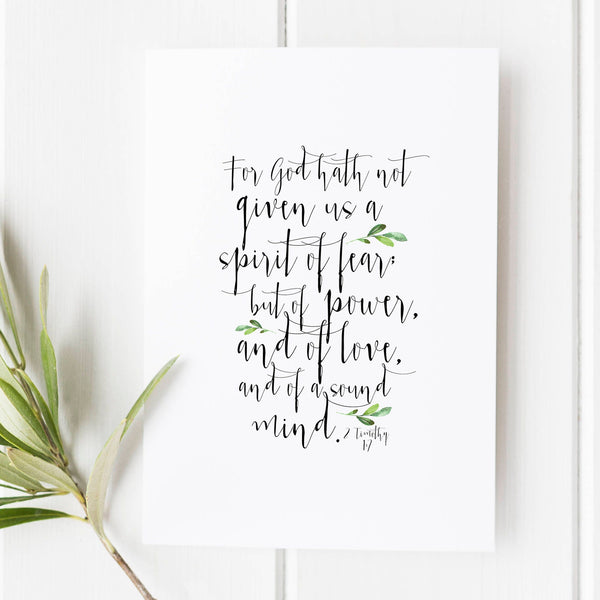 For God hath not
given us a
spirit of fear;
but of power,
and of love,
and of a sound
mind. 2 Timothy
1:7